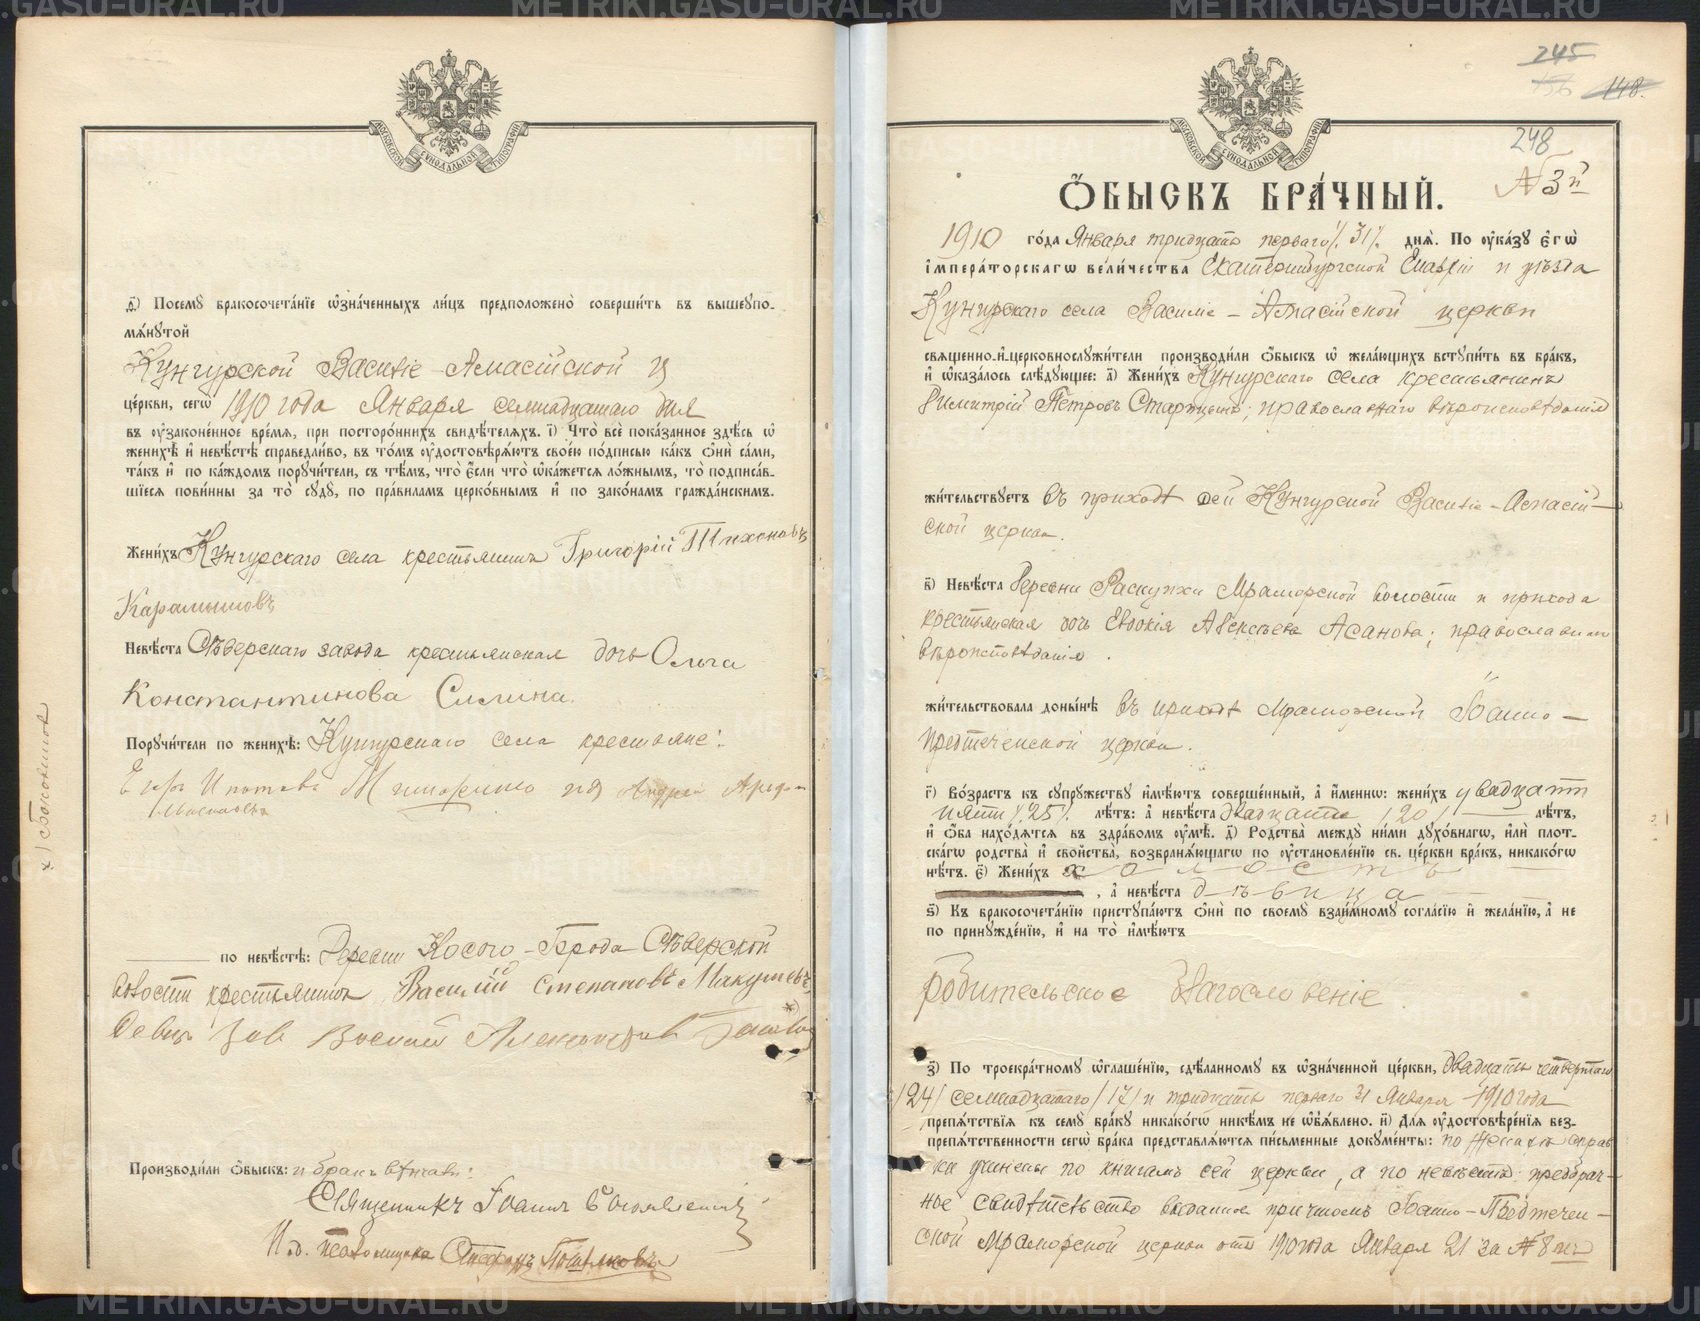 МОСКОВСКОЙ СѴНОДАЛЬНОЙ ТИПОГРАФІИ
д҃і) Посемꙋ бракосочета́нїе ѡ҆зна́ченныхъ ли́цъ предположено̀ соверши́ть въ вышеупо-
мѧ́нꙋтой
Кунгурской Василіе-Амасійской ц
це́ркви, сегѡ̀ 1910 года Января семнадцатаго дня
въ ᲂу҆зако́не́нное вре́мѧ, при посторо́ннихъ свидѣ́телѧхъ. і҃) Что̀ всѐ пока́занное здѣ́сь ѡ҆
женихѣ̀ и҆ невѣ́стѣ справедли́во, въ то́мъ ᲂу҆достовѣрѧ́ютъ свое́ю по́дписью ка́къ ѻ҆нѝ са́ми,
та́къ и҆ по ка́ждомъ порꙋчи́тели, съ тѣ́мъ, что̀ є҆́сли что̀ ѡ҆ка́жетсѧ ло́жнымъ, то̀ подписа́в-
шїесѧ пови́нны за то̀ сꙋдꙋ̀, по пра́виламъ церко́внымъ и҆ по зако́намъ гражда́нскимъ.
Жени́хъ Кунгурскаго села крестьянинъ Григорій Тихоновъ
Карамышовъ
Невѣ́ста Сѣверскаго завода крестьянская дочь Ольга
Константинова Силина.
Порꙋчи́тели по женихѣ̀: Кунгурскаго села крестьяне:
по невѣ́стѣ: Деревни Косого-Брода Сѣверской
волости крестьянинъ Василій Степановъ Макушевъ
Василий Александров
Производи́ли ѻ҆́быскъ: и бракъ вѣнчали:
Священникъ Іоаннъ Богоявленскій
И. д. псаломщика Стефанъ
МОСКОВСКОЙ СѴНОДАЛЬНОЙ ТИПОГРАФІИ
245
156 148.
248
№ 3й
Ѻ҆́БЫСКЪ БРА́ЧНЫЙ.
1910 го́да Января тридцать перваго /31/ днѧ̀. По ᲂу҆ка́зꙋ є҆гѡ̀
і҆мпера́торскагѡ вели́чества Екатеринбургской Епархіи и уѣзда
Кунгурскаго села Василіе-Амасійской церкви
свѧще́нно-и҆-церковнослꙋжи́тели производи́ли ѻ҆́быскъ ѡ҆ жела́ющихъ встꙋпи́ть въ бра́къ,
и҆ ѡ҆каза́лось слѣ́дꙋющее: а҃) Жени́хъ Кунгурскаго села крестьянинъ
Димитрій Петровъ Старцевъ; православнаго вѣроисповѣданія
жи́тельствꙋетъ въ приходѣ сей Кунгурской Василіе-Амасій-
ской церкви.
в҃) Невѣ́ста Деревни Раскуихи Мраморской волости и прихода
крестьянская дочь Евдокія Авексѣева Асанова; православнаго
вѣроисповѣданія.
жи́тельствовала доны́нѣ въ приходѣ Мраморской Іоанно-
Предтеченской церкви.
г҃) Во́зрастъ къ сꙋпрꙋ́жествꙋ и҆мѣ́ютъ соверше́нный, а҆ и҆́меннѡ: жени́хъ двадцати
пяти /25/ лѣ́тъ: а҆ невѣ́ста двадцати /20/ лѣ́тъ,
и҆ ѻ҆́ба нахо́дѧтсѧ въ здра́вомъ ᲂу҆мѣ̀. д҃) Родства̀ междꙋ̀ ни́ми дꙋхо́внагѡ, и҆лѝ плот-
ска́гѡ родства̀ и҆ сво́йства̀, возбранѧ́ющагѡ по ᲂу҆становле́нїю св. це́ркви бра́къ, никако́гѡ
нѣ́тъ. є҃) Жени́хъ холостъ
, а҆ невѣ́ста дѣвица
ѕ҃) Къ бракосочета́нїю пристꙋпа́ютъ ѻ҆нѝ по своемꙋ̀ взаи́мномꙋ согла́сїю и҆ жела́нїю, а҆ не
по принꙋжде́нїю, и҆ на то̀ и҆мѣ́ютъ
родительское благословеніе.
з҃) По троекра́тномꙋ ѡ҆глаше́нїю, сдѣ́ланномꙋ въ ѡ҆зна́ченной це́ркви, двадцать четвертаго
/24/ семнадцатаго /17/ и тридцать перваго 31 Января 1910 года
препѧ́тствїѧ къ семꙋ̀ бра́кꙋ никако́гѡ никѣ́мъ не ѡ҆б̾ѧ́влено. и҃) Длѧ̀ ᲂу҆достовѣре́нїѧ без-
препѧ́тственности сегѡ̀ бра́ка представлѧ́ютсѧ пи́сьменные докꙋме́нты: по женихѣ справ
ки учинены по книгамъ сей церкви, а по невѣстѣ предбрач-
ное свидѣтельство выданное причтомъ Іоанно-Предтечен-
ской Мраморской церкви отъ 1910 года Января 21 за № 8
METRIKI.GASU-URAL.RU